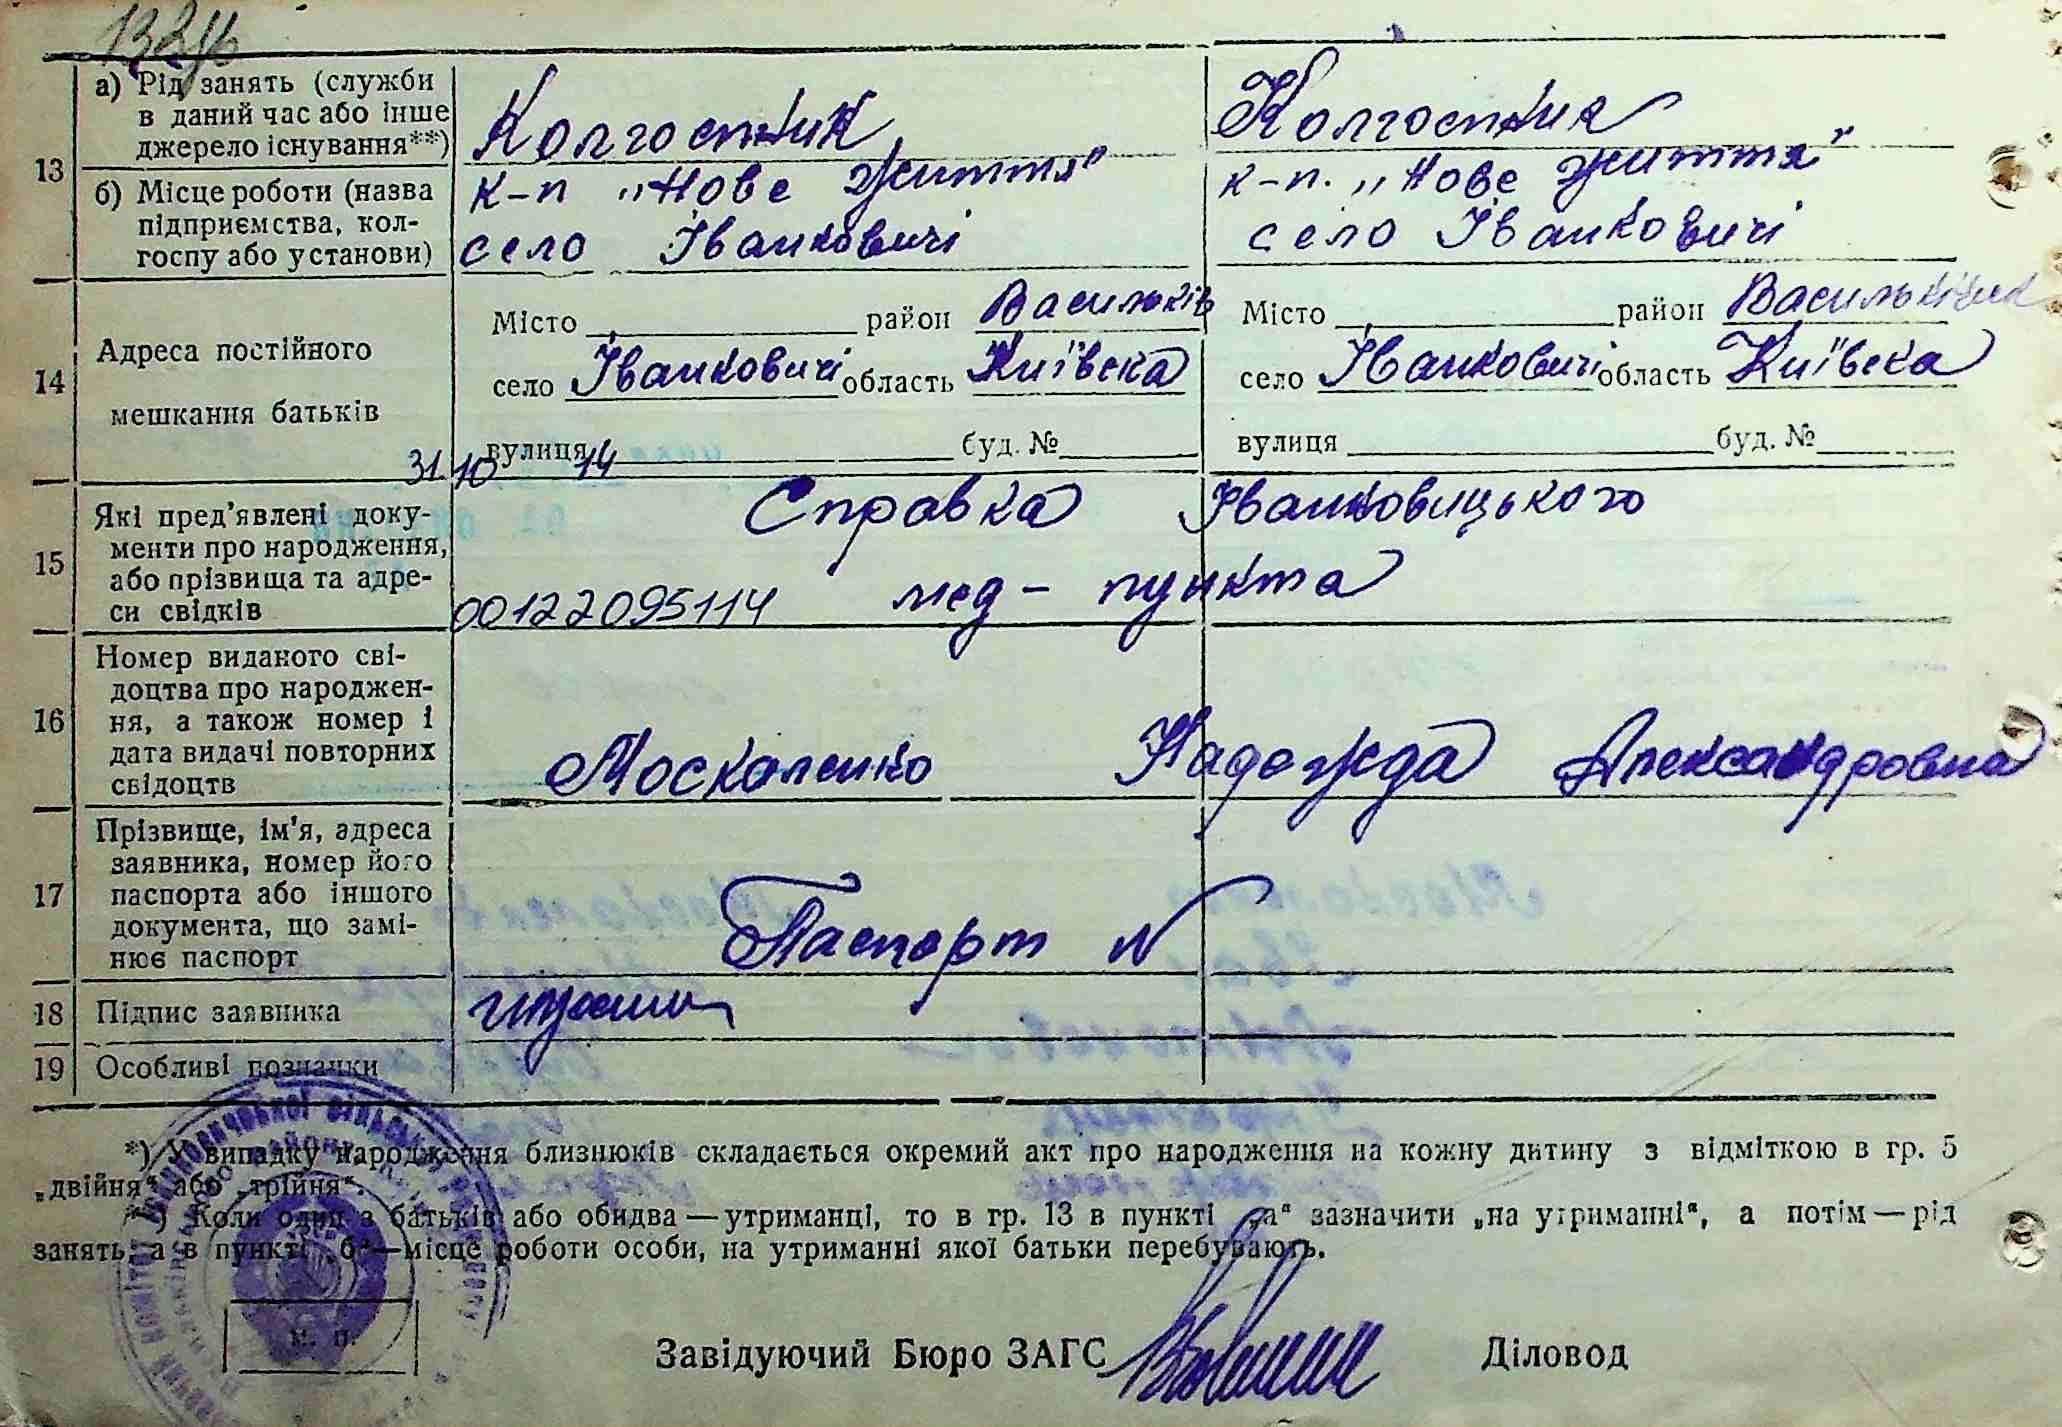 13
а) Рід занять (служби в даний час або інше джерело існування**)
Колгоспник
Колгоспник
б) Місце роботи (назва підприємства, колгоспу або установи)
к-п „Нове життя"
село Іванковичі
к-п. „Нове життя"
село Іванковичі
14
Адреса постійного мешкання батьків
Місто район Васильків
село Іванковичі область Київська
вулиця буд. №
Місто район
село Іванковичі область Київська
вулиця буд. №
31.10 14
15
Які пред'явлені документи про народження, або прізвища та адреси свідків
Справка Іванковицького
мед-пункта
00122095114
16
Номер виданого свідоцтва про народження, а також номер і дата видачі повторних свідоцтв
Москаленко Надежда Александровна
17
Прізвище, ім'я, адреса заявника, номер його паспорта або іншого документа, що замінює паспорт
Паспорт №
18
Підпис заявника
19
Особливі позначки
*) У випадку народження близнюків складається окремий акт про народження на кожну дитину з відміткою в гр. 5
„двійня" або „трійня".
**) Коли один з батьків або обидва — утриманці, то в гр. 13 в пункті „а" зазначити „на утриманні", а потім — рід
занять, а в пункті „б"—місце роботи особи, на утриманні якої батьки перебувають.
М. П.
Завідуючий Бюро ЗАГС
Діловод